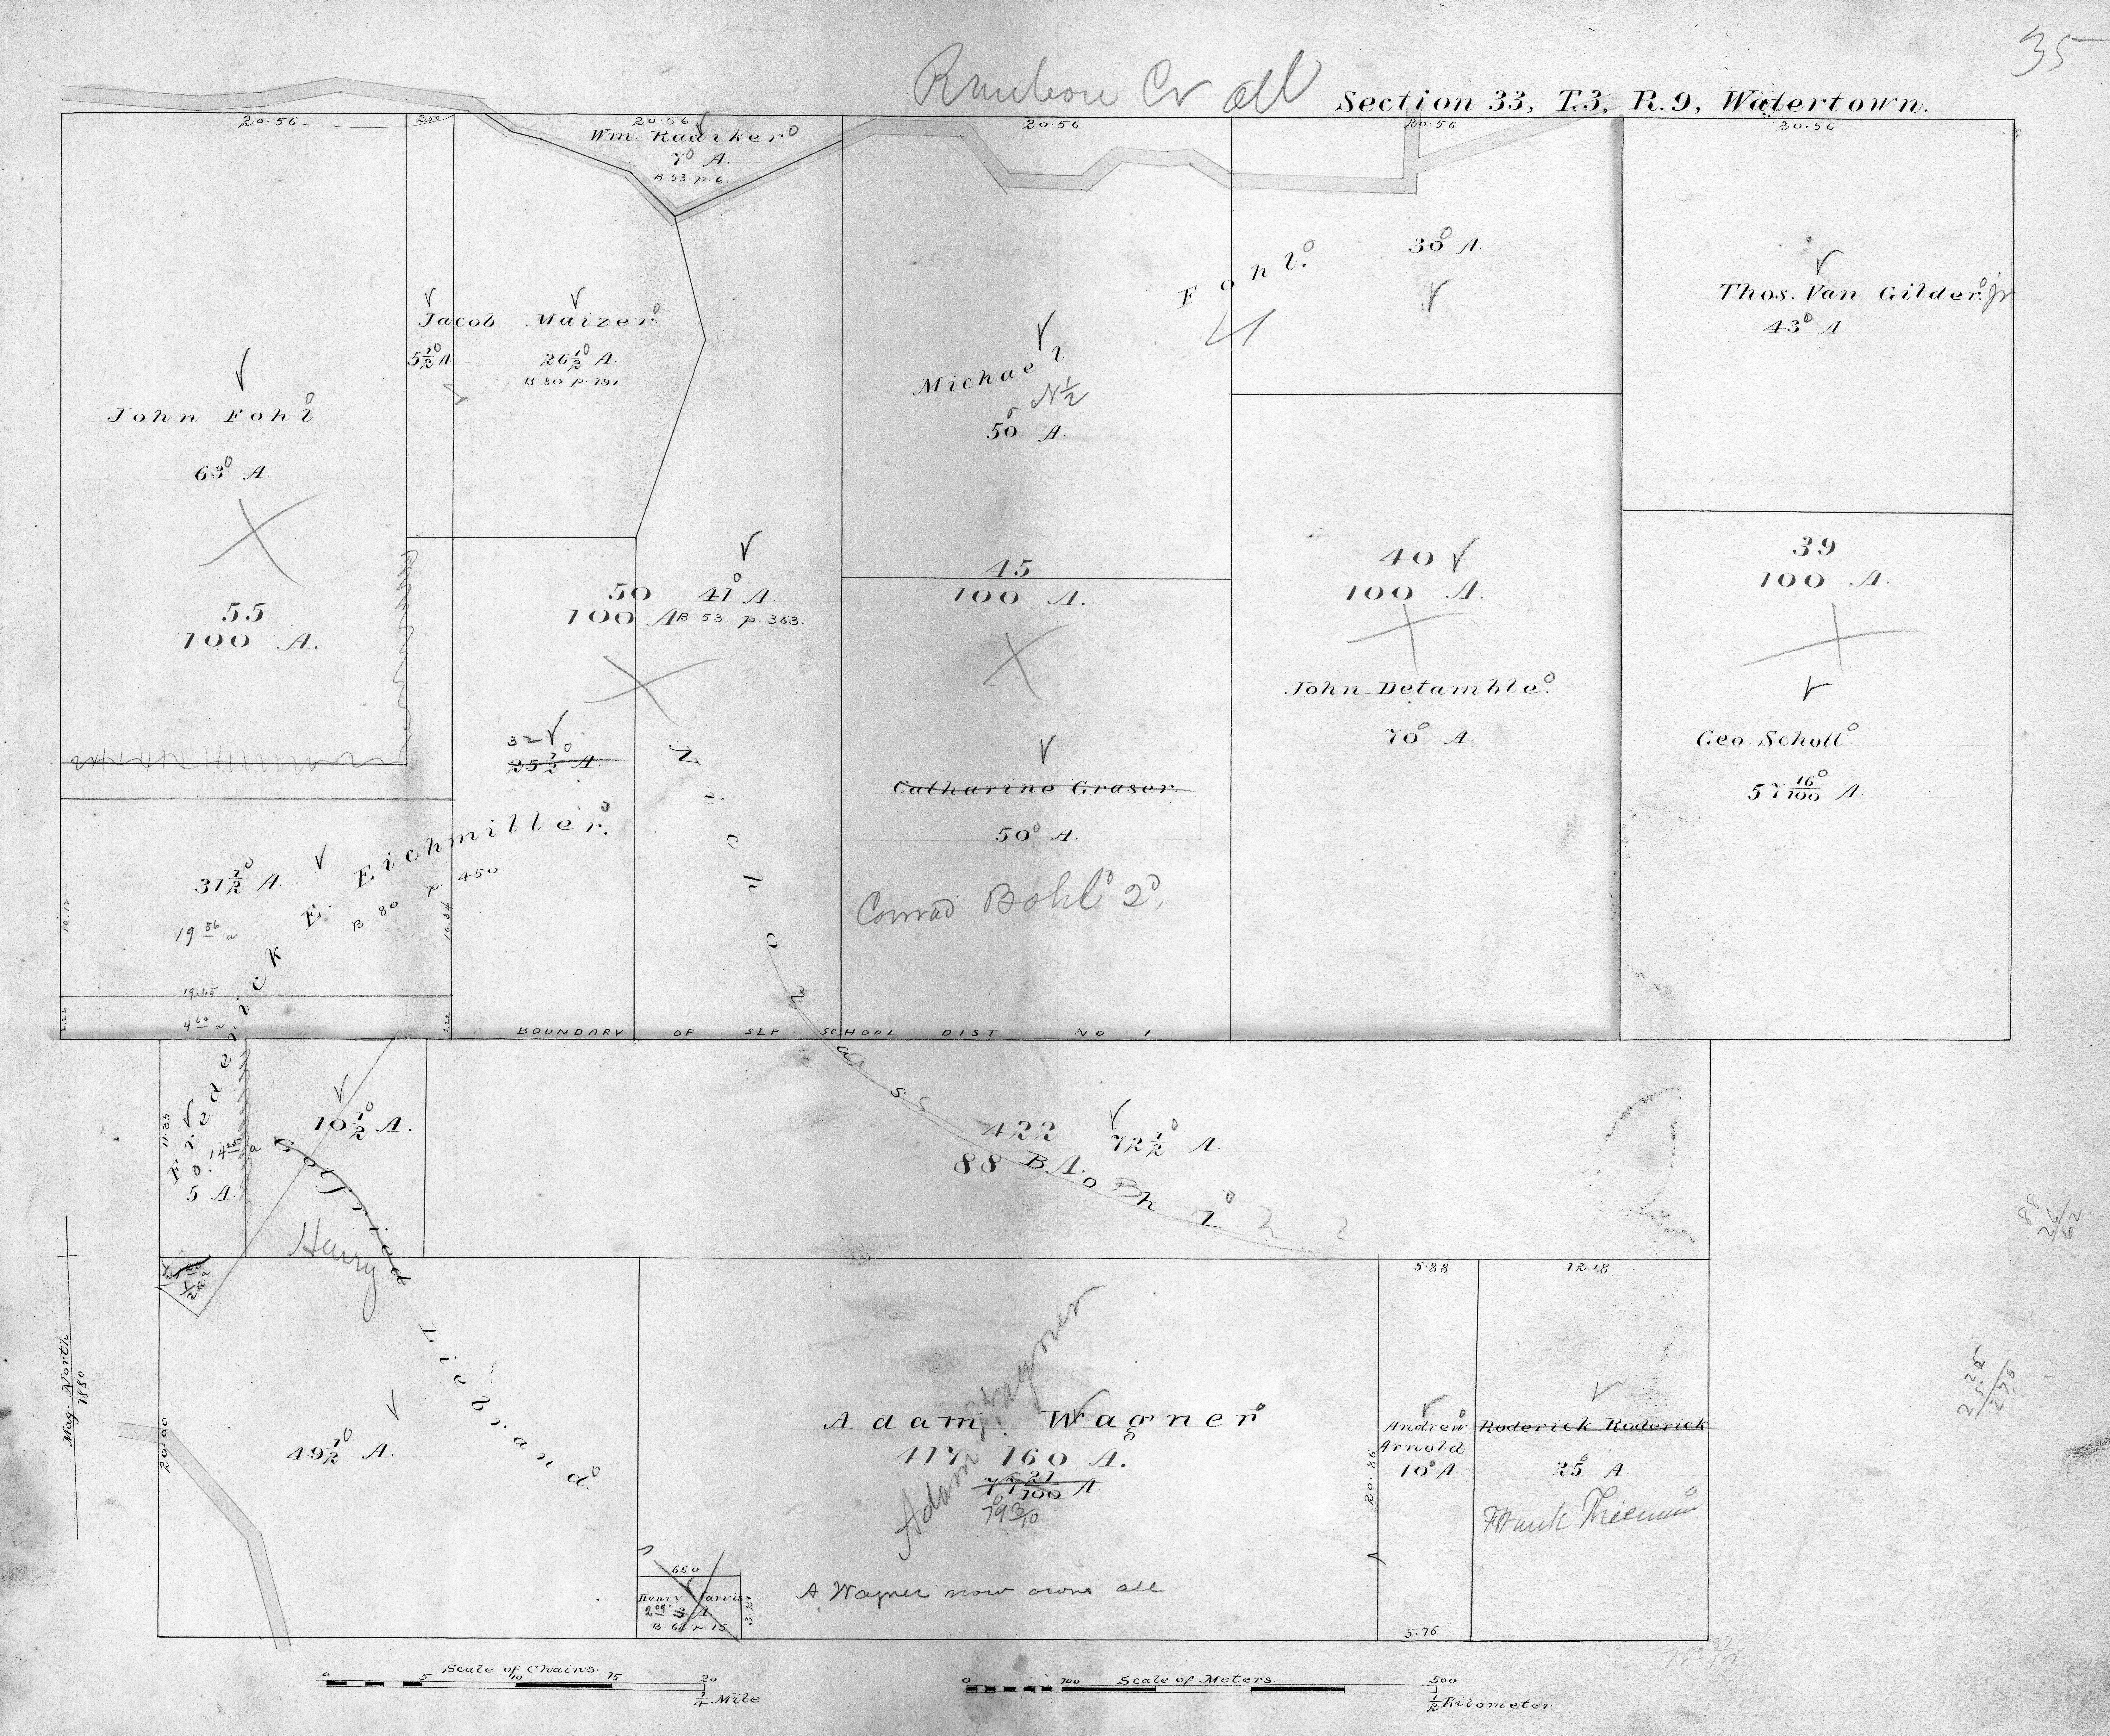 35
Rainbow Cr all
Section 33, T.3, R.9, Watertown.
20.56
2.50
20.56
20.56
20.56
20.56
Wm. Radiker
7 A.
B. 53 p. 6.
30 A.
Thos. Van Gilder. Jr
43 A.
Jacob Maizer.
5 1/2 A
26 1/2 A.
B. 80 p. 191
Michael Fohl.
N 1/2
50 A.
John Fohl
63 A.
55
100 A.
50
100 A
41 A.
B. 53 p. 363.
45
100 A.
40
100 A.
39
100 A.
John Detamble.
70 A.
Geo. Schott.
57 16/100 A.
32
25 1/2 A.
Catharine Graser.
50 A.
Conrad Bohl 2.
31 1/2 A.
Frederick E. Eichmiller.
B. 80 p. 450
19 86 a
10.12
10.34
19.65
4 a
2.22
2.22
BOUNDARY OF SEP SCHOOL DIST NO 1
Nicholas Bohl
11.35
14 a
5 A.
10 1/2 A.
422
88 A.
72 1/2 A.
Gotfried Liebrand.
Henry
1/2 a
49 1/2 A.
20.00
Mag. North
1880
5.88
12.18
Adam Wagner
Adam Wagner
417 160 A.
77 21/100 A
79 3/10
A Wagner now owns all
Andrew
Arnold
10 A.
20.86
Roderick Roderick
25 A.
Frank Thieman
650
Henry Jarvis
2 A
B. 64 p. 15
3.21
5.76
88
26/62
Scale of Chains.
0 5 10 15 20
1/4 Mile
Scale of Meters.
0 100 500
1/2 Kilometer